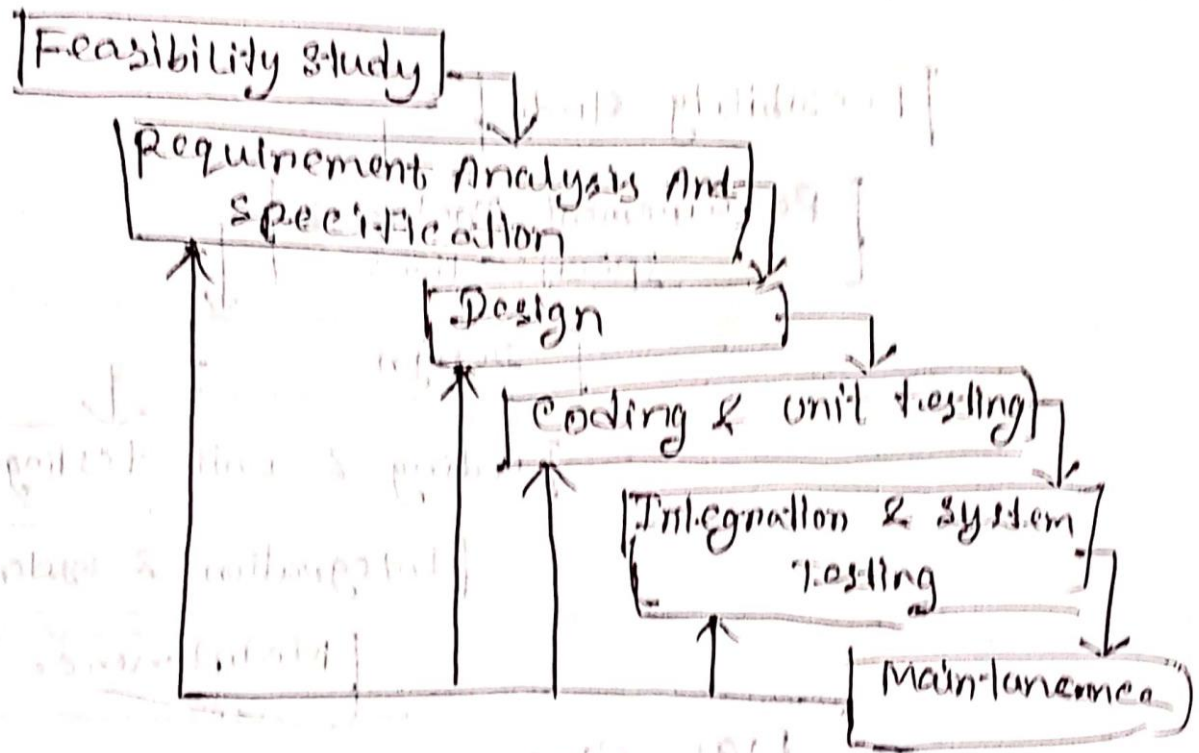 Feasibility Study
Requirement Analysis And
Specification
Design
Coding & unit testing
Integration & System
Testing